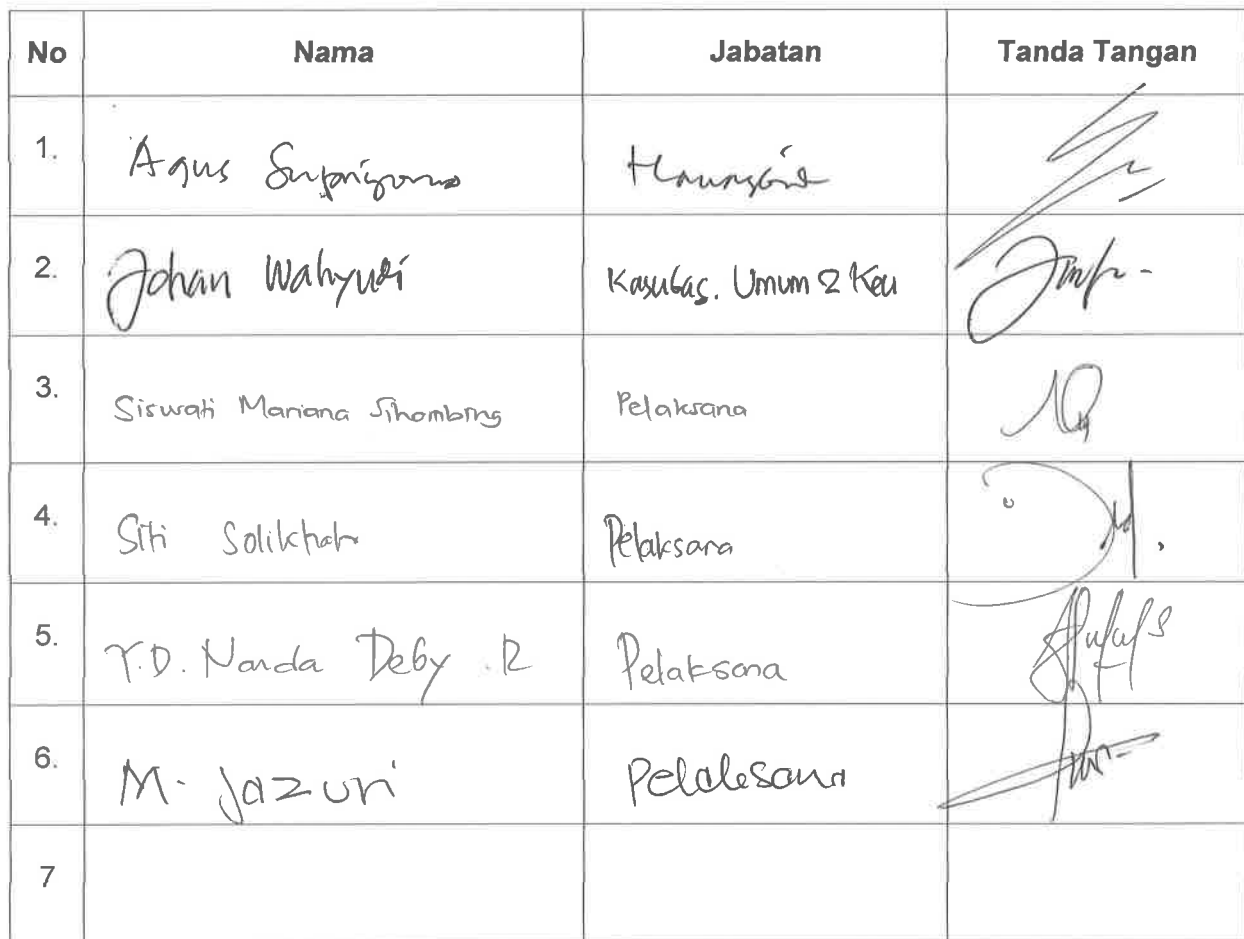 No Nama Jabatan Tanda Tangan
1. Agus Supriyono
2. Johan Wahyudi Kasubag. Umum & Keu
3. Siswati Mariana Sihombing Pelaksana
4. Siti Solikhah Pelaksana
5. Y.D. Nanda Deby .R Pelaksana
6. M. Jazuri Pelaksana
7